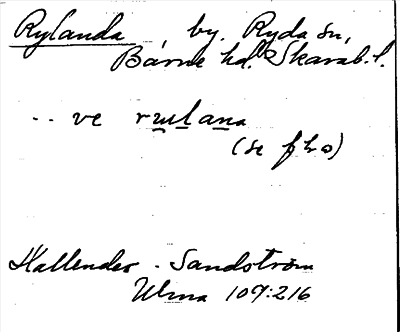 Rylanda, by. Ryda sn,
Barne hd. Skarab. l.
.. ve rwlana
(se fhs)
Hallender - Sandström
Ulma 109:216